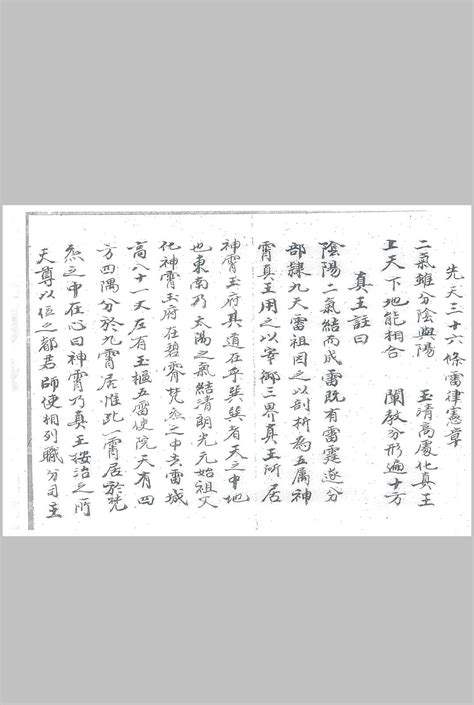 先天三十六條雷律憲章
二氣雖分陰與陽　玉清高處化真王
上天下地能相合　闡教分形遍十方
真王註曰
陰陽二氣結而成雷既有雷霆遂分
部隸九天雷祖因之以剖析為五屬神
霄真王用之以宰御三界真王所居
神霄玉府其道在乎巽巽者天之中地
也東南乃太陽之氣結清朗光元始祖父
化神霄玉府在碧霄梵炁之中去雷城
高八十一丈左有玉樞五雷使院天有四
方四隅分於九霄居惟此一霄居於梵
炁之中在心曰神霄乃真王按治之所
天尊以位之都若師使相列職分司主